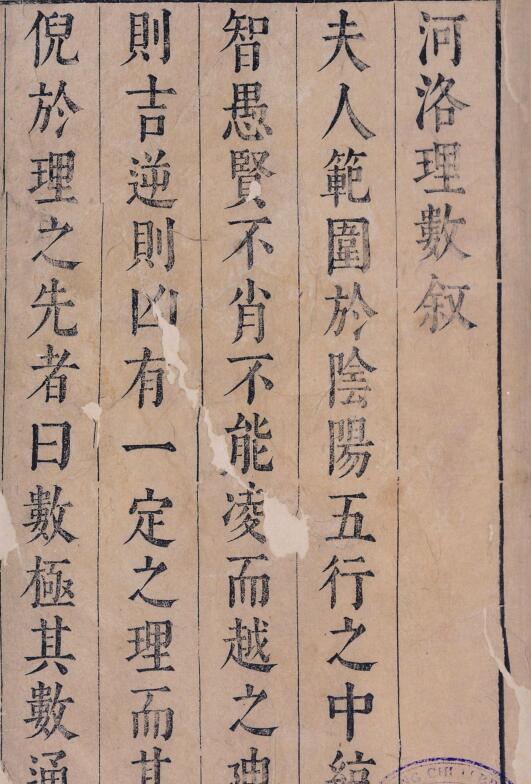 河洛理數叙
夫人範圍於陰陽五行之中
智愚賢不肖不能凌而越之
則吉逆則凶有一定之理而其
倪於理之先者曰數極其數通